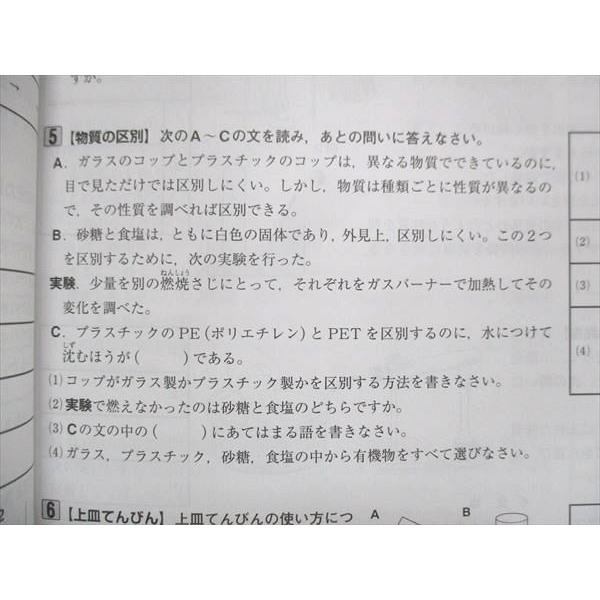 すか。
5 【物質の区別】 次のA～Cの文を読み，あとの問いに答えなさい。
A．ガラスのコップとプラスチックのコップは，異なる物質でできているのに，
目で見ただけでは区別しにくい。しかし，物質は種類ごとに性質が異なるの
で，その性質を調べれば区別できる。
B．砂糖と食塩は，ともに白色の固体であり，外見上，区別しにくい。この2つ
を区別するために，次の実験を行った。
ねんしょう
実験．少量を別の燃焼さじにとって，それぞれをガスバーナーで加熱してその
変化を調べた。
C．プラスチックのPE（ポリエチレン）とPETを区別するのに，水につけて
しず
沈むほうが（　　）である。
(1) コップがガラス製かプラスチック製かを区別する方法を書きなさい。
(2) 実験で燃えなかったのは砂糖と食塩のどちらですか。
(3) Cの文の中の（　　）にあてはまる語を書きなさい。
(4) ガラス，プラスチック，砂糖，食塩の中から有機物をすべて選びなさい。
6 【上皿てんびん】 上皿てんびんの使い方につ
A
B
(1)
(2)
(3)
(4)